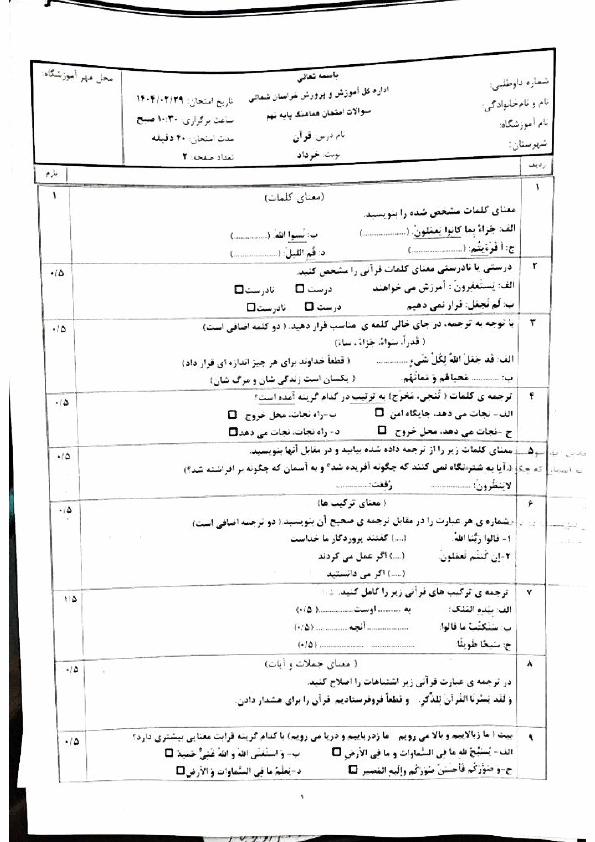 باسمه تعالی
شماره داوطلبی:
نام و نام‌خانوادگی:
نام آموزشگاه:
شهرستان:
اداره کل آموزش و پرورش خراسان شمالی
سوالات امتحان هماهنگ پایه نهم
نام درس: قرآن
نوبت: خرداد
تاریخ امتحان: ۱۴۰۴/۰۲/۲۹
ساعت برگزاری: ۱۰:۳۰ صبح
مدت امتحان: ۴۰ دقیقه
تعداد صفحه: ۲
محل مهر آموزشگاه:
ردیف
بارم
۱
(معنای کلمات)
۱
معنای کلمات مشخص شده را بنویسید.
الف: جَزاءً بِما کانوا یَعمَلونَ: (................) ب: نَسوا اللهَ: (................)
ج: أ فَرَءَیتُم: (................) د: قُمِ اللیلَ: (................)
۲ درستی یا نادرستی معنای کلمات قرآنی را مشخص کنید. ۰/۵
الف: یَستَغفِرونَ: آمرزش می خواهند درست نادرست
ب: لَم نَجعَل: قرار نمی دهیم درست نادرست
۳ با توجه به ترجمه، در جای خالی کلمه ی مناسب قرار دهید. (دو کلمه اضافی است) ۰/۵
( قَدراً، سَواءً، جَزاءً ، ساءَ)
الف: قَد جَعَلَ اللهُ لِکُلِّ شَیءٍ ............ ( قطعاً خداوند برای هر چیز اندازه ای قرار داد)
ب: ............ مَحیاهُم وَ مَماتُهُم. ( یکسان است زندگی شان و مرگ شان)
۴ ترجمه ی کلمات ( نُنجی، مَخرَج) به ترتیب در کدام گزینه آمده است؟ ۰/۵
الف- نجات می دهد، جایگاه امن ب-راه نجات، محل خروج
ج - نجات می دهد، محل خروج د- راه نجات، نجات می دهد
۵ معنای کلمات زیر را از ترجمه داده شده بیابید و در مقابل آنها بنویسید. ۰/۵
(آیا به شتر نگاه نمی کنند که چگونه آفریده شد؟ و به آسمان که چگونه بر افراشته شد؟)
لایَنظُرونَ: ................ رُفِعَت: ................
۶ ( معنای ترکیب ها) ۰/۵
شماره ی هر عبارت را در مقابل ترجمه ی صحیح آن بنویسید ( دو ترجمه اضافی است)
۱- قالوا رَبُّنا اللهُ. (....) گفتند پروردگار ما خداست
۲-اِن کُنتُم تَعمَلونَ (....) اگر عمل می کردند
(....) اگر می دانستید
۷ ترجمه ی ترکیب های قرآنی زیر را کامل کنید. ۱/۵
الف: بِیَدِهِ المُلکُ: به ......... اوست............ (۰/۵)
ب: سَنَکتُبُ ما قالوا: ............ آنچه ............ (۰/۵)
ج: سَبحًا طَویلًا: ........................ (۰/۵)
۸ ( معنای جملات و آیات) ۰/۵
در ترجمه ی عبارت قرآنی زیر اشتباهات را اصلاح کنید.
وَ لَقَد یَسَّرنَا القُرآنَ لِلذِّکرِ. و قطعاً فروفرستادیم قرآن را برای هشدار دادن.
۹ بیت ( ما زبالاییم و بالا می رویم ما زدریاییم و دریا می رویم) با کدام گزینه قرابت معنایی بیشتری دارد؟ ۰/۵
الف- یُسَبِّحُ لِلّهِ ما فِی السَّماواتِ و ما فِی الأرضِ ب- وَ استَغنَی اللهُ و اللهُ غَنِیٌّ حَمیدٌ
ج-وَ صَوَّرَکُم فَأحسَنَ صُوَرَکُم و إلیهِ المَصیرُ د-یَعلَمُ ما فِی السَّماواتِ وَ الأرضِ
۱